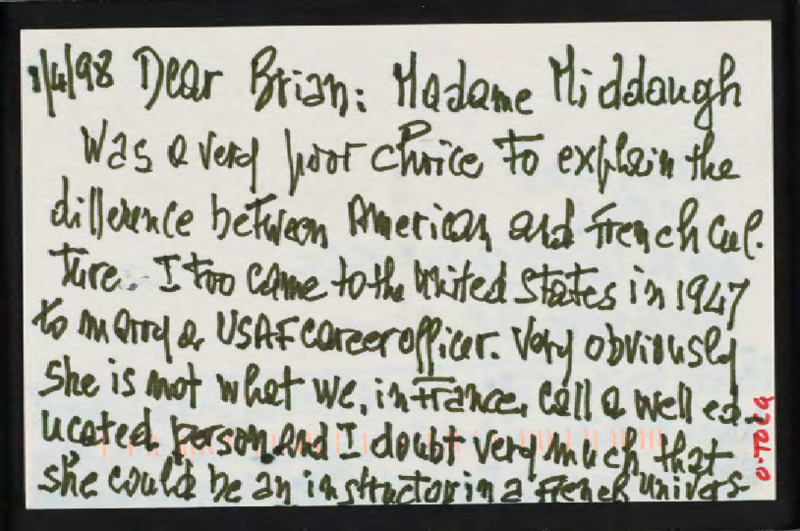 1/4/98 Dear Brian: Madame Middaugh
was a very poor choice to explain the
difference between American and French cul-
ture. I too came to the United States in 1947
to marry a USAF career officer. Very obviously
she is not what we, in France, call a well ed
ucated person and I doubt very much that
she could be an instructor in a French univers-